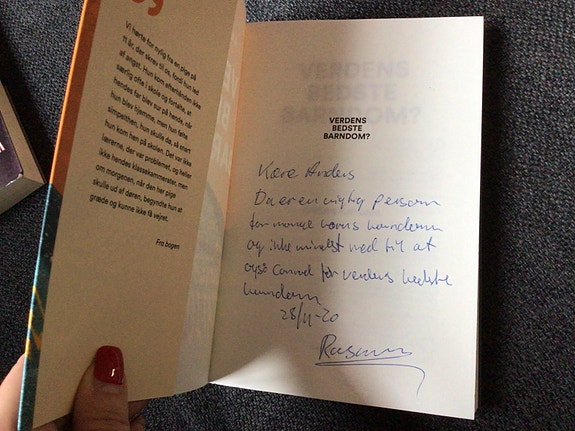 Vi hørte for nylig fra en pige på
11 år, der skrev til os, fordi hun led
af angst. Hun kom efterhånden ikke
særlig ofte i skole og fortalte, at
hendes far blev sur på hende, når
hun blev hjemme, men hun fandt
simpelthen, hun skulle dø, så snart
hun kom hen på skolen. Det var ikke
lærerne, der var problemet, og heller
ikke hendes klassekammerater, men
om morgenen, når den her pige
skulle ud af døren, begyndte hun at
græde og kunne ikke få vejret.
Fra bogen
VERDENS
BEDSTE
BARNDOM?
VERDENS
BEDSTE
BARNDOM?
Kære Anders
Du er en vigtig person
for mange børns barndom
og ikke mindst ved til at
også Conrad får verdens bedste
barndom
28/11-20
Rasmus